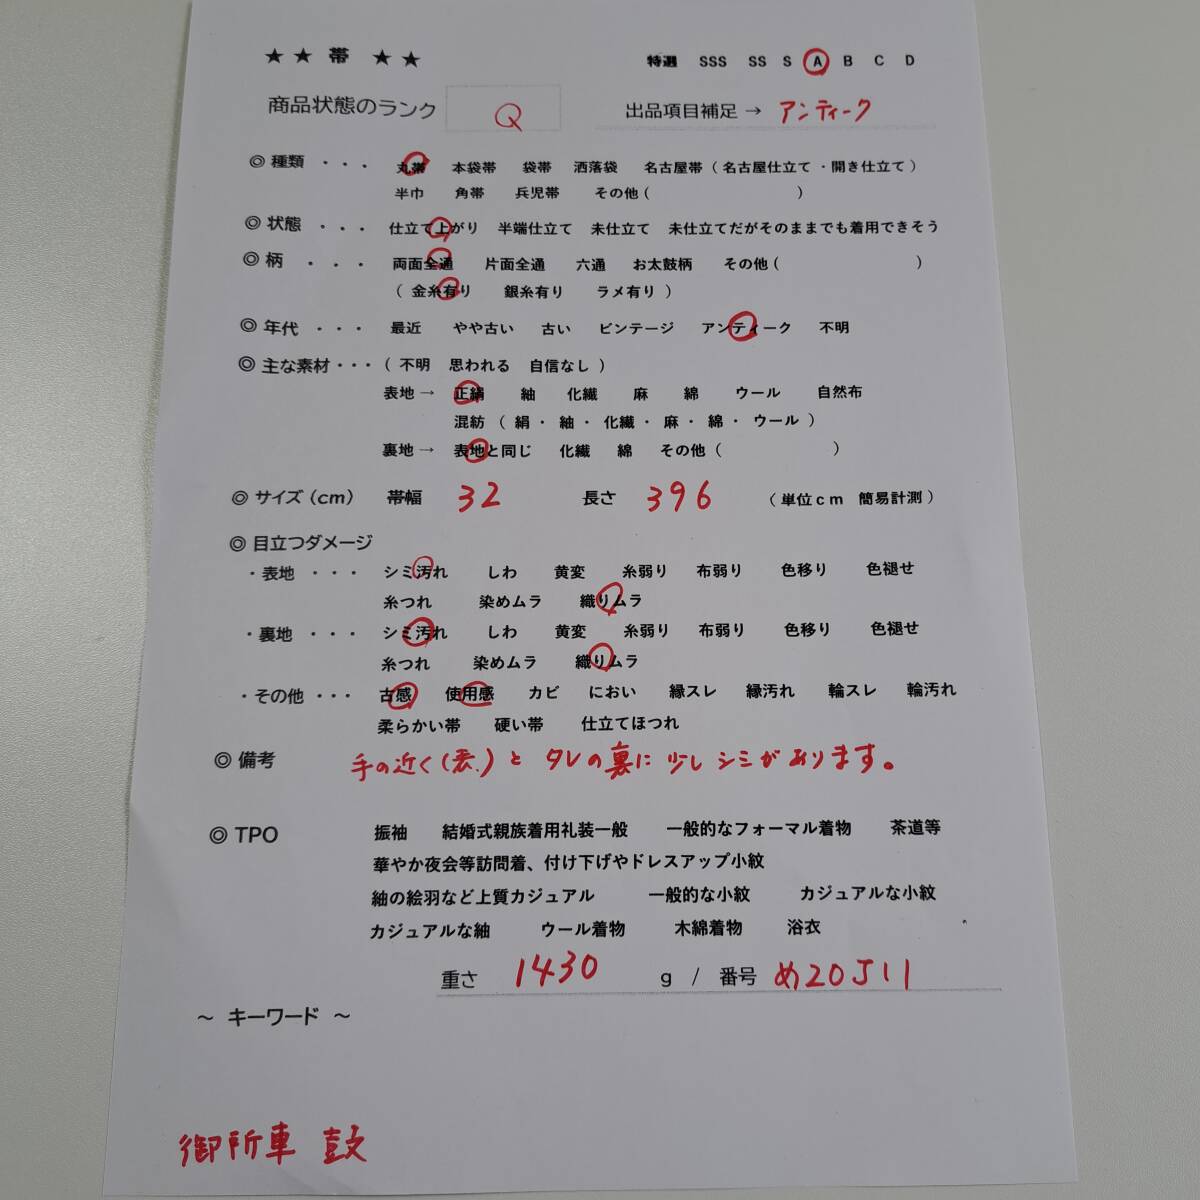 ★ ★ 帯 ★ ★ 特選 SSS SS S A B C D
商品状態のランク Q 出品項目補足 → アンティーク
◎ 種類 ・・・ 丸帯 本袋帯 袋帯 洒落袋 名古屋帯 ( 名古屋仕立て ・ 開き仕立て )
半巾 角帯 兵児帯 その他 ( )
◎ 状態 ・・・ 仕立て上がり 半端仕立て 未仕立て 未仕立てだがそのままでも着用できそう
◎ 柄 ・・・ 両面全通 片面全通 六通 お太鼓柄 その他 ( )
( 金糸有り 銀糸有り ラメ有り )
◎ 年代 ・・・ 最近 やや古い 古い ビンテージ アンティーク 不明
◎ 主な素材・・・ ( 不明 思われる 自信なし )
表地 → 正絹 紬 化繊 麻 綿 ウール 自然布
混紡 ( 絹・ 紬・ 化繊・ 麻・ 綿・ ウール )
裏地 → 表地と同じ 化繊 綿 その他 ( )
◎ サイズ (cm) 帯幅 32 長さ 396 ( 単位cm 簡易計測 )
◎ 目立つダメージ
・表地 ・・・ シミ汚れ しわ 黄変 糸弱り 布弱り 色移り 色褪せ
糸つれ 染めムラ 織りムラ
・裏地 ・・・ シミ汚れ しわ 黄変 糸弱り 布弱り 色移り 色褪せ
糸つれ 染めムラ 織りムラ
・その他 ・・・ 古感 使用感 カビ におい 縁スレ 縁汚れ 輪スレ 輪汚れ
柔らかい帯 硬い帯 仕立てほつれ
◎ 備考 手の近く(表.)と タレの裏に 少し シミがあります。
◎ TPO 振袖 結婚式親族着用礼装一般 一般的なフォーマル着物 茶道等
華やか夜会等訪問着、付け下げやドレスアップ小紋
紬の絵羽など上質カジュアル 一般的な小紋 カジュアルな小紋
カジュアルな紬 ウール着物 木綿着物 浴衣
重さ 1430 g / 番号 め20J11
～ キーワード ～
御所車 鼓